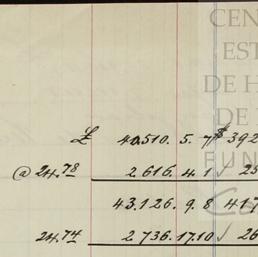 CEN
EST
DE H
DE
FUN
£ 40.510. 5. 7 $ 392
@ 24.78 2 616. 4. 1 √ 25
43.126. 9. 8 417
24.74 2 736. 17. 10 √ 26